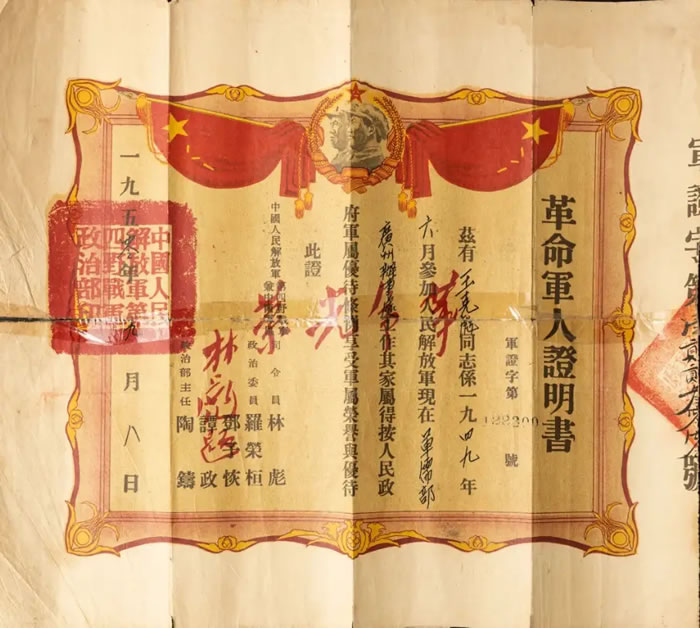 革命軍人證明書
軍證字第 號
茲有王克同志係一九四九年
六月參加人民解放軍現在軍需部
廣州辦事處工作其家屬得按人民政
府軍屬優待條例享受軍屬榮譽與優待
此證
光榮
中國人民解放軍第四野戰軍
司令員 林彪
政治委員 羅榮桓
鄧子恢
譚政
政治部主任 陶鑄
林彪
中國人民
解放軍第
四野戰軍
政治部印
一九五年九月八日